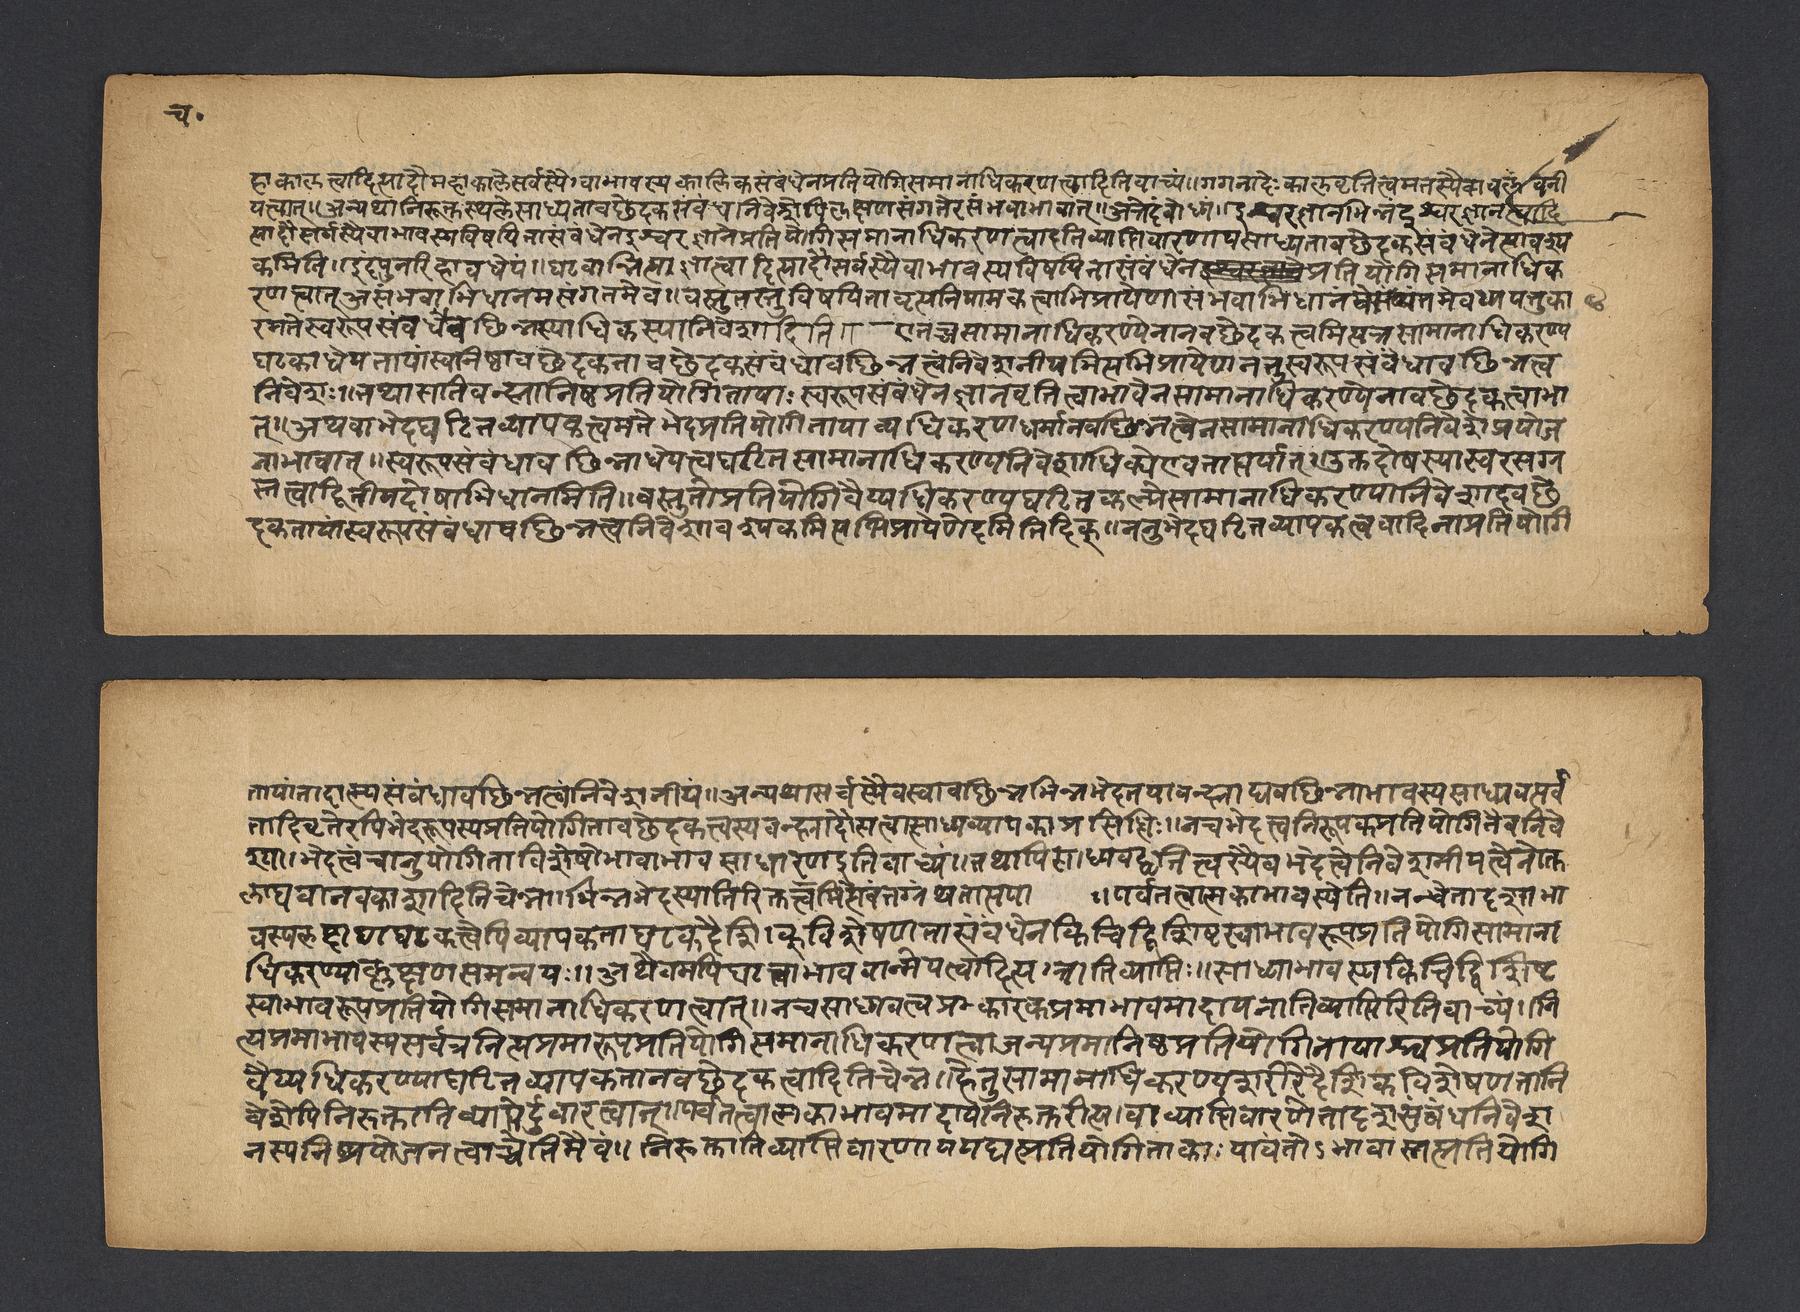 च॰
हाकालत्वादित्यादौ महाकाले सर्वस्यैवाभावस्य कालिकसंबंधेन प्रतियोगिसमानाधिकरणत्वादिति वाच्यं॥ गगनादेः कालवृत्तित्वमतस्यैवावलंबनी
यत्वात्॥ अन्यथा निरूक्तस्थले साध्यतावछेदकसंबंधनिवेशेपि लक्षणसंगतेरसंभवाभावात्॥ अत्रेदं बोध्यं॥ ईश्वरज्ञानभिन्नं ईश्वरज्ञानत्वादि
त्यादौ सर्वस्यैवाभावस्य विषयितासंबंधेन ईश्वरज्ञाने प्रतियोगिसमानाधिकरणत्वादतिव्याप्तिवारणाय साध्यतावछेदकसंबंधेनेत्यावश्य
कमिति। इदं पुनरिहावधेयं॥ घटवान्नित्यज्ञात्वादित्यादौ सर्वस्यैवाभावस्य विषयितासंबंधेन प्रतियोगिसमानाधिक
रणत्वात् असंभवाभिधानमसंगतमेव॥ वस्तुतस्तु विषयितावृत्यनियामकत्वाभिप्रायेणासंभवाभिधानं तमेवथा पत्तुका
रमते स्वरूपसंबंधेवछिन्नस्याधिकस्यानिवेशादिति॥ एतच्च सामानाधिकरण्येनानवछेदकत्वमित्यत्र सामानाधिकरण्य
घटकाधेयतायां स्वनिष्ठावछेदकतावछेदकसंबंधावछिन्नत्वं निवेशनीयमित्यभिप्रायेण न तु स्वरूपसंबंधावछिन्नत्व
निवेशः॥ तथा सति वन्ह्नानिष्ठप्रतियोगितायाः स्वरूपसंबंधेन ज्ञानवृत्तित्वाभावेन सामानाधिकरण्येनावछेदकत्वाभा
त्॥ अथवा भेदघटितव्यापकत्वमते भेदप्रतियोगिताया व्यधिकरणधर्मानवछिन्नत्वेन सामानाधिकरण्यनिवेशप्रयोज
नाभावात्॥ स्वरूपसंबंधावछिन्नाधेयत्वघटितसामानाधिकरण्यनिवेशाधिक्ये एव तात्पर्यात्। उक्तदोषस्यास्वरसग्र
स्तत्वाद्वितीयदोषाभिधानमिति॥ वस्तुतो प्रतियोगिवैय्यधिकरण्यघटितकल्पे सामानाधिकरण्यानिवेशादवछे
दकतायां स्वरूपसंबंधावछिन्नत्वनिवेशावश्यकमित्यभिप्रायेणेदमिति दिक्॥ ननु भेदघटितव्यापकत्ववादिना प्रतियोगि
तायां तादात्म्यसंबंधावछिन्नत्वं निवेशनीयं॥ अन्यथा सर्वस्यैव स्वावछिन्नभिन्नभेदतया वन्ह्नाद्यवछिन्नाभावस्य साध्यवत्सर्व
तादिवृत्तेरपि भेदरूपस्य प्रतियोगितावछेदकत्वस्य वन्ह्नादौ सत्वात्साध्यव्यापकाप्रसिद्धिः॥ न च भेदत्वनिरूपकप्रतियोगितैव निवे
श्या। भेदत्वं चानुयोगिता विशेषो भावाभावसाधारण इति वाच्यं॥ तथापि साध्यवद्वृत्तित्वस्यैव भेदत्वे निवेशनीयत्वेनोक्त
लाघवानवकाशादिति चेन्न॥ भिन्नभेदस्यातिरिक्तत्वमित्येवंतग्रंथतात्पर्या ॥ पर्वतत्वात्मकाभावस्येति॥ नन्वेतादृशाभा
वस्य लक्षणाघटकत्वेपि व्यापकताघटकदैशिकविशेषणतासंबंधेन किंचिद्विशिष्टस्वाभावरूपप्रतियोगिसामाना
धिकरण्याल्लक्षणसमन्वयः॥ अथैवमपि घटत्वाभाववान्मेयत्वादित्यत्रातिव्याप्तिः॥ साध्याभावस्य किंचिद्विशिष्ट
स्वाभावरूपप्रतियोगिसमानाधिकरणत्वात्॥ न च साध्यवत्वप्रकारकप्रमाभावमादाय नातिव्याप्तिरिति वाच्यं॥ नि
त्यप्रमाभावस्य सर्वत्र नित्यप्रमारूपप्रतियोगिसमानाधिकरणत्वाज्जन्यप्रमानिष्ठप्रतियोगितायाश्च प्रतियोगि
वैय्यधिकरण्याघटितव्यापकतानवछेदकत्वादिति चेन्न॥ हेतुसामानाधिकरण्यशरीरे दैशिकविशेषणतानि
वेशेपि निरूक्तातिव्याप्तेर्दुर्वारत्वात्। पर्वतत्वात्मकाभावमादाय निरूक्तरीत्यावाव्याप्तिवारणे तादृशसंबंधनिवेश
नस्य निष्प्रयोजनत्वाच्चेति मैवं॥ निरूक्तातिव्याप्तिवारणाय यद्यत्प्रतियोगिताकाः यावंतोऽभावास्तत्प्रतियोगि